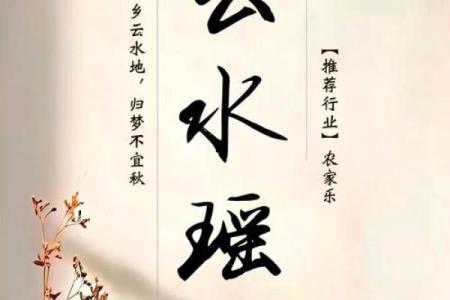 【推荐行业】农家乐
云水瑶
乡云水地，归梦不宜秋